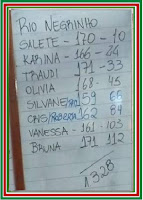 RIO NEGRINHO
SALETE - 170 - 10
KARINA - 166 - 24
TRAUDI - 171 - 33
OLIVIA - 168 - 45
SILVANE 159 66
CRIS/ROBERTA 162 84
VANESSA - 161 - 103
BRUNA 171 112
1328